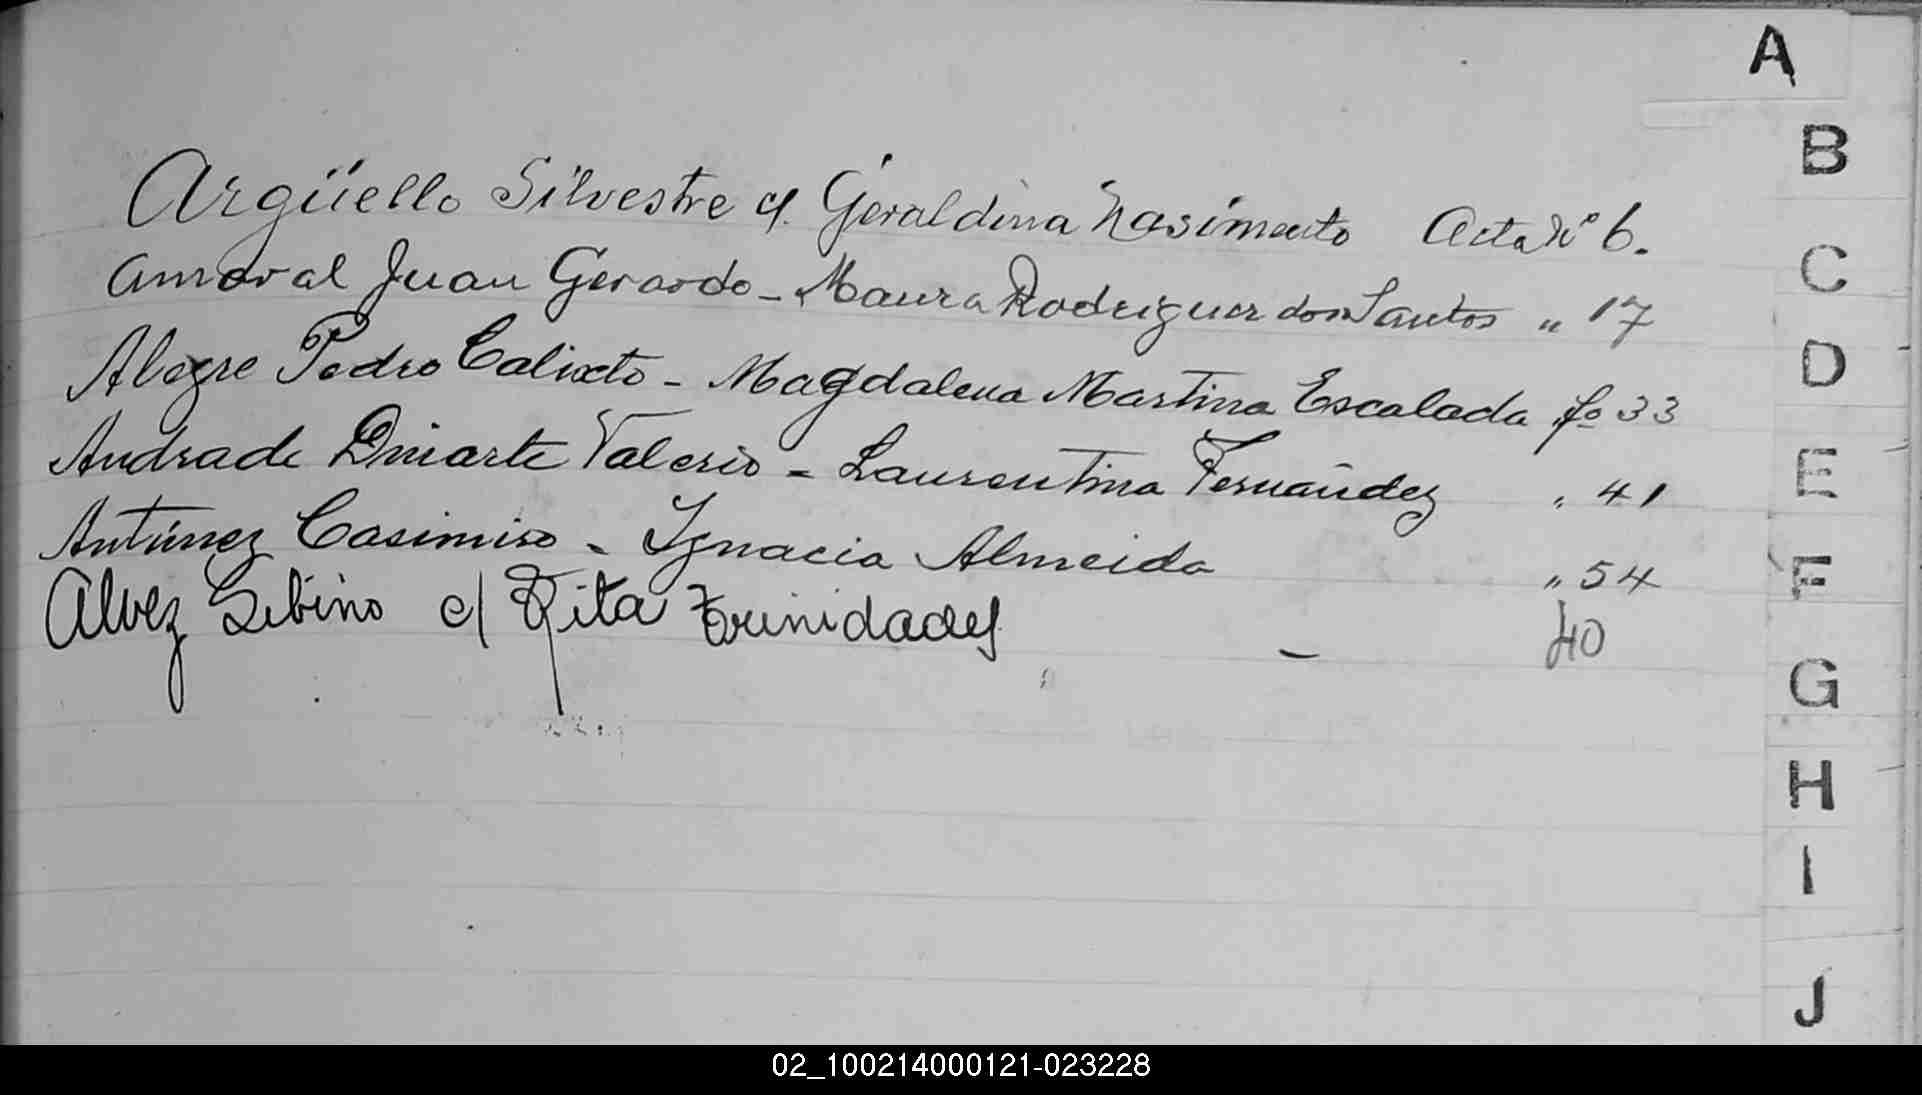 A
Argüello Silvestre c/. Geraldina Nasimento Acta Nº 6.
Amaral Juan Gerardo - Maura Rodriguez dos Santos " 17
Alegre Pedro Calixto - Magdalena Martina Escalada fº 33
Andrade Duarte Valerio - Laurentina Fernández " 41
Antúnez Casimiro - Ignacia Almeida " 54
Alvez Libino c/ Rita Trinidades - 40
B
C
D
E
F
G
H
I
J
02_100214000121-023228